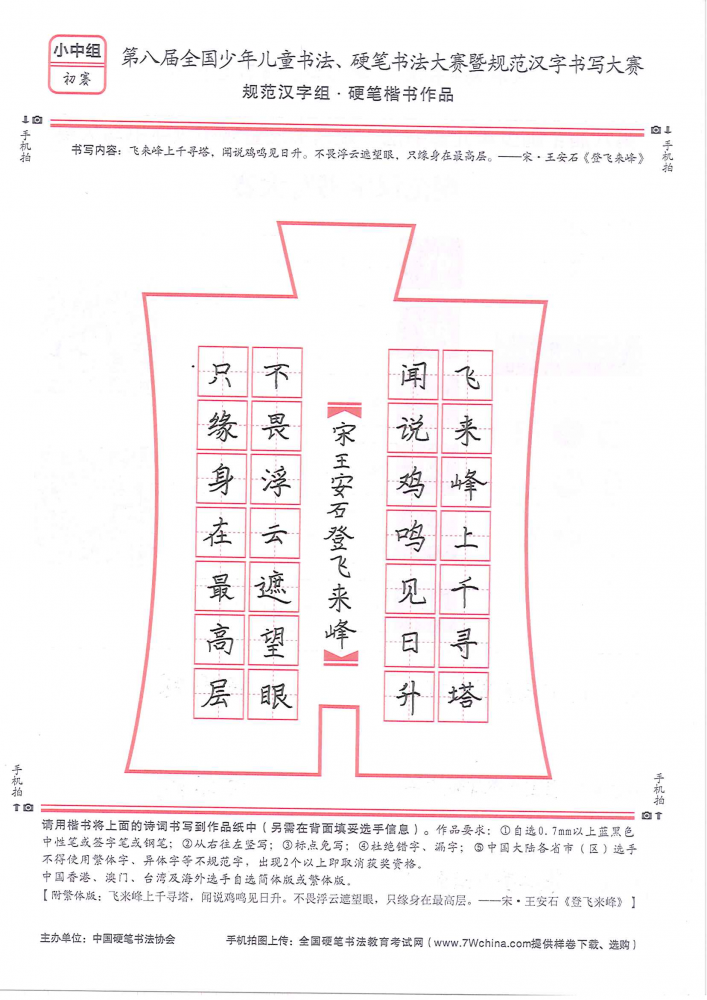 小中组
初赛
第八届全国少年儿童书法、硬笔书法大赛暨规范汉字书写大赛
规范汉字组·硬笔楷书作品
手机拍
手机拍
书写内容：飞来峰上千寻塔，闻说鸡鸣见日升。不畏浮云遮望眼，只缘身在最高层。——宋·王安石《登飞来峰》
飞来峰上千寻塔
闻说鸡鸣见日升
宋王安石登飞来峰
不畏浮云遮望眼
只缘身在最高层
手机拍
手机拍
请用楷书将上面的诗词书写到作品纸中（另需在背面填妥选手信息）。作品要求：①自选0.7mm以上蓝黑色
中性笔或签字笔或钢笔；②从右往左竖写；③标点免写；④杜绝错字、漏字；⑤中国大陆各省市（区）选手
不得使用繁体字、异体字等不规范字，出现2个以上即取消获奖资格。
中国香港、澳门、台湾及海外选手自选简体版或繁体版。
【附繁体版：飞来峰上千寻塔，闻说鸡鸣见日升。不畏浮云遮望眼，只缘身在最高层。——宋·王安石《登飞来峰》】
主办单位：中国硬笔书法协会 手机拍图上传：全国硬笔书法教育考试网（www.7Wchina.com提供样卷下载、选购）